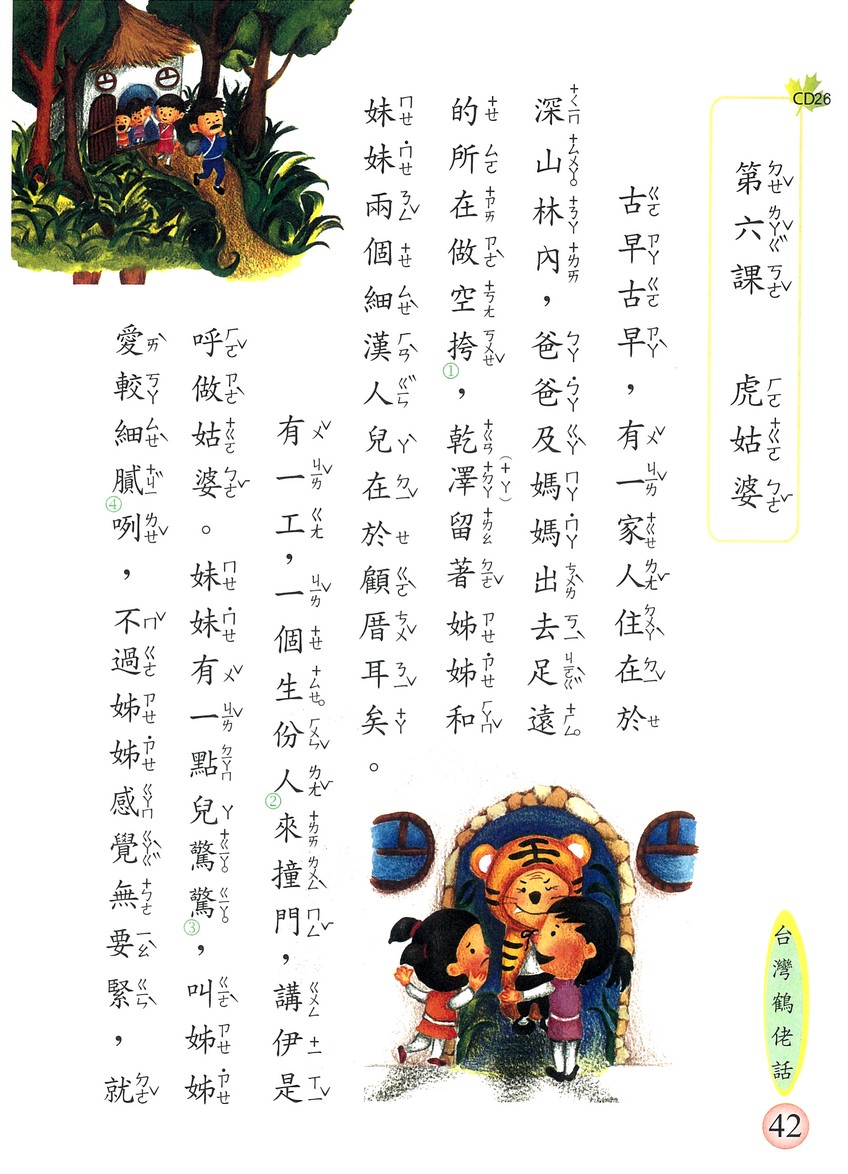 CD26
第六課 虎姑婆
古早古早，有一家人住在於
深山林內，爸爸及媽媽出去足遠
的所在做空挎①，乾澤留著姊姊和
妹妹兩個細漢人兒在於顧厝耳矣。
有一工，一個生份人②來撞門，講伊是
呼做姑婆。妹妹有一點兒驚驚③，叫姊姊
愛較細膩④咧，不過姊姊感覺無要緊，就
台灣鶴佬話
42